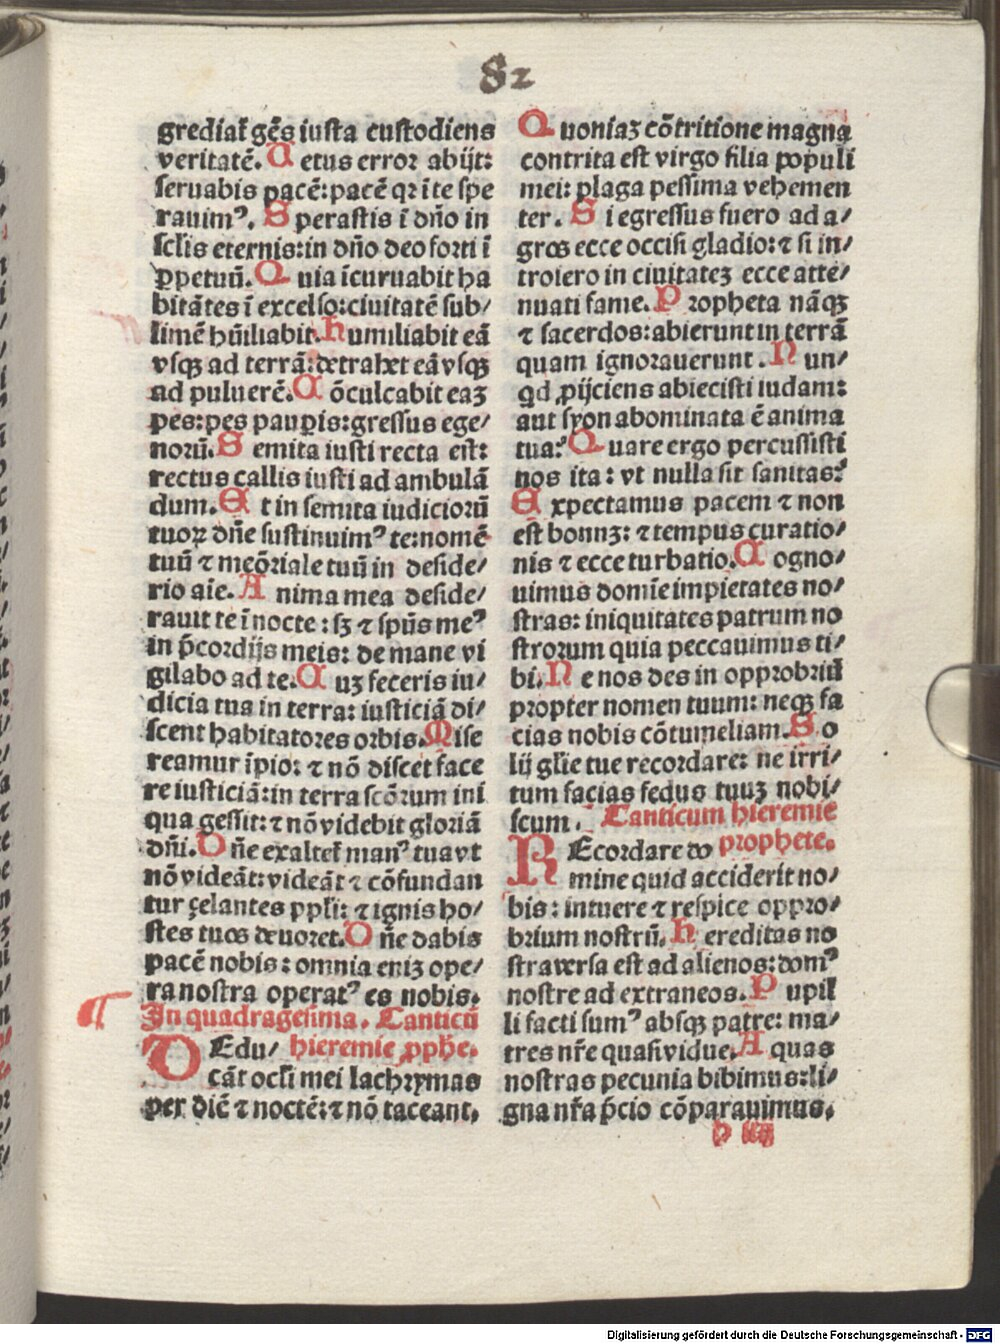 82
grediat᷑ gēs iusta custodiens
veritatē. Uetus error abijt:
seruabis pacē: pacē qꝛ ī te spe
rauimꝰ. Sperastis ī dn̄o in
sclīs eternis: in dn̄o deo forti ī
ꝑpetuū. Quia īcuruabit ha
bitātes ī excelso: ciuitatē sub⸗
limē hūiliabit. Humiliabit eā
vsqꝫ ad terrā: detrahet eā vsqꝫ
ad puluerē. Cōculcabit eaꝫ
pes: pes pauꝑis: gressus ege⸗
norū. Semita iusti recta est:
rectus callis iusti ad ambulā
dum. Et in semita iudiciorū
tuoꝝ dn̄e sustinuimꝰ te: nomē
tuū ⁊ meōriale tuū in deside⸗
rio aīe. Anima mea deside⸗
rauit te ī nocte: sꝫ ⁊ spūs meꝰ
in p̄cordijs meis: de mane vi
gilabo ad te. Cuꝫ feceris iu⸗
dicia tua in terra: iusticiā di⸗
scent habitatores orbis. Mise
reamur īpio: ⁊ nō discet face
re iusticiā: in terra scōrum ini
qua gessit: ⁊ nō videbit gloriā
dn̄i. Dn̄e exaltet᷑ manꝰ tua vt
nō videāt: videāt ⁊ cōfundan
tur çelantes ppl̄i: ⁊ ignis ho⸗
stes tuos deuoret. Dn̄e dabis
pacē nobis: omnia eniꝫ ope⸗
ra nostra operatꝰ es nobis.
¶ In quadragesima. Canticū
DEdu⸗ hieremie ꝓphe.
cāt ocl̄i mei lachrymas
per diē ⁊ noctē: ⁊ nō taceant.
Quoniaꝫ cōtritione magna
contrita est virgo filia populi
mei: plaga pessima vehemen
ter. Si egressus fuero ad a⸗
gros ecce occisi gladio: ⁊ si in⸗
troiero in ciuitateꝫ ecce atte⸗
nuati fame. Propheta nāqꝫ
⁊ sacerdos: abierunt in terrā
quam ignorauerunt. Nun⸗
qd ꝓijciens abiecisti iudam:
aut syon abominata ē anima
tua? Quare ergo percussisti
nos ita: vt nulla sit sanitas?
Expectamus pacem ⁊ non
est bonuꝫ: ⁊ tempus curatio⸗
nis ⁊ ecce turbatio. Cogno⸗
uimus domīe impietates no⸗
stras: iniquitates patrum no
strorum quia peccauimus ti⸗
bi. Ne nos des in opprobriū
propter nomen tuum: neqꝫ fa
cias nobis cōtumeliam. So
lij gl̄ie tue recordare: ne irri⸗
tum facias fedus tuuꝫ nobi⸗
scum. Canticum hieremie
REcordare do prophete.
mine quid acciderit no⸗
bis: intuere ⁊ respice oppro⸗
brium nostrū. Hereditas no
stra versa est ad alienos: domꝰ
nostre ad extraneos. Pupil
li facti sumꝰ absqꝫ patre: ma⸗
tres nr̄e quasi vidue. Aquas
nostras pecunia bibimus: li⸗
gna nr̄a p̄cio cōparauimus.
Digitalisierung gefördert durch die Deutsche Forschungsgemeinschaft - DFG